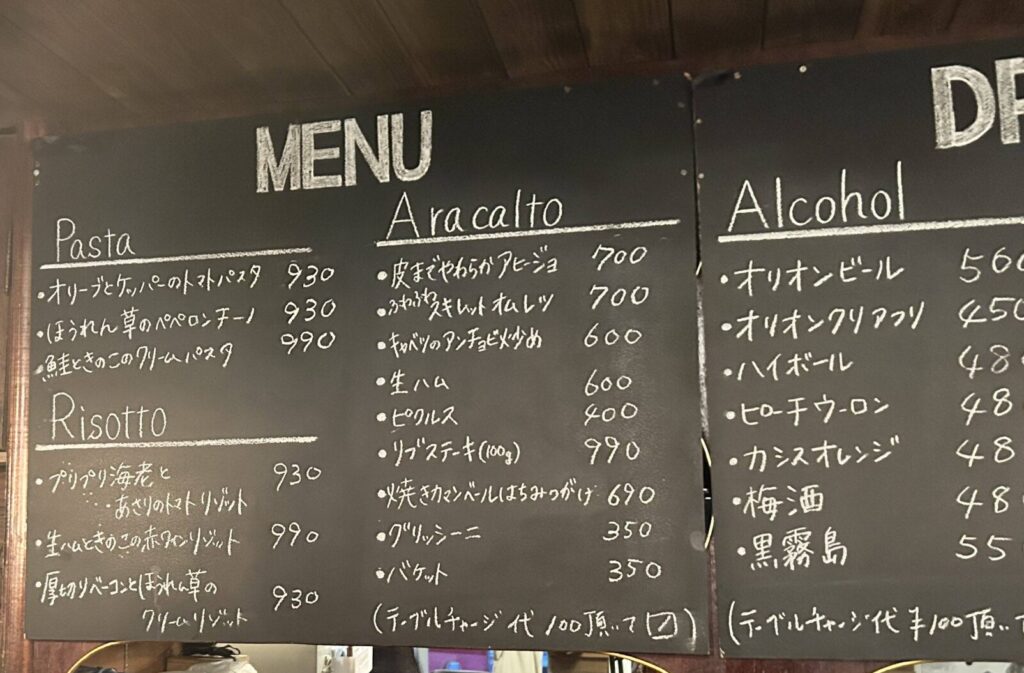 MENU
Pasta
・オリーブとケッパーのトマトパスタ 930
・ほうれん草のペペロンチーノ 930
・鮭ときのこのクリームパスタ 990
Risotto
・プリプリ海老と 930
あさりのトマトリゾット
・生ハムときのこの赤ワインリゾット 990
・厚切りベーコンとほうれん草の 930
クリームリゾット
Aracalto
・皮までやわらかアヒージョ 700
・ふわふわスキレットオムレツ 700
・キャベツのアンチョビ炒め 600
・生ハム 600
・ピクルス 400
・リブステーキ(100g) 990
・焼きカマンベールはちみつがけ 690
・グリッシーニ 350
・バケット 350
(テーブルチャージ代 100頂いて〼)
Alcohol
・オリオンビール 560
・オリオンクリアフリ 450
・ハイボール 48
・ピーチウーロン 48
・カシスオレンジ 48
・梅酒 48
・黒霧島 55
(テーブルチャージ代¥100頂いて